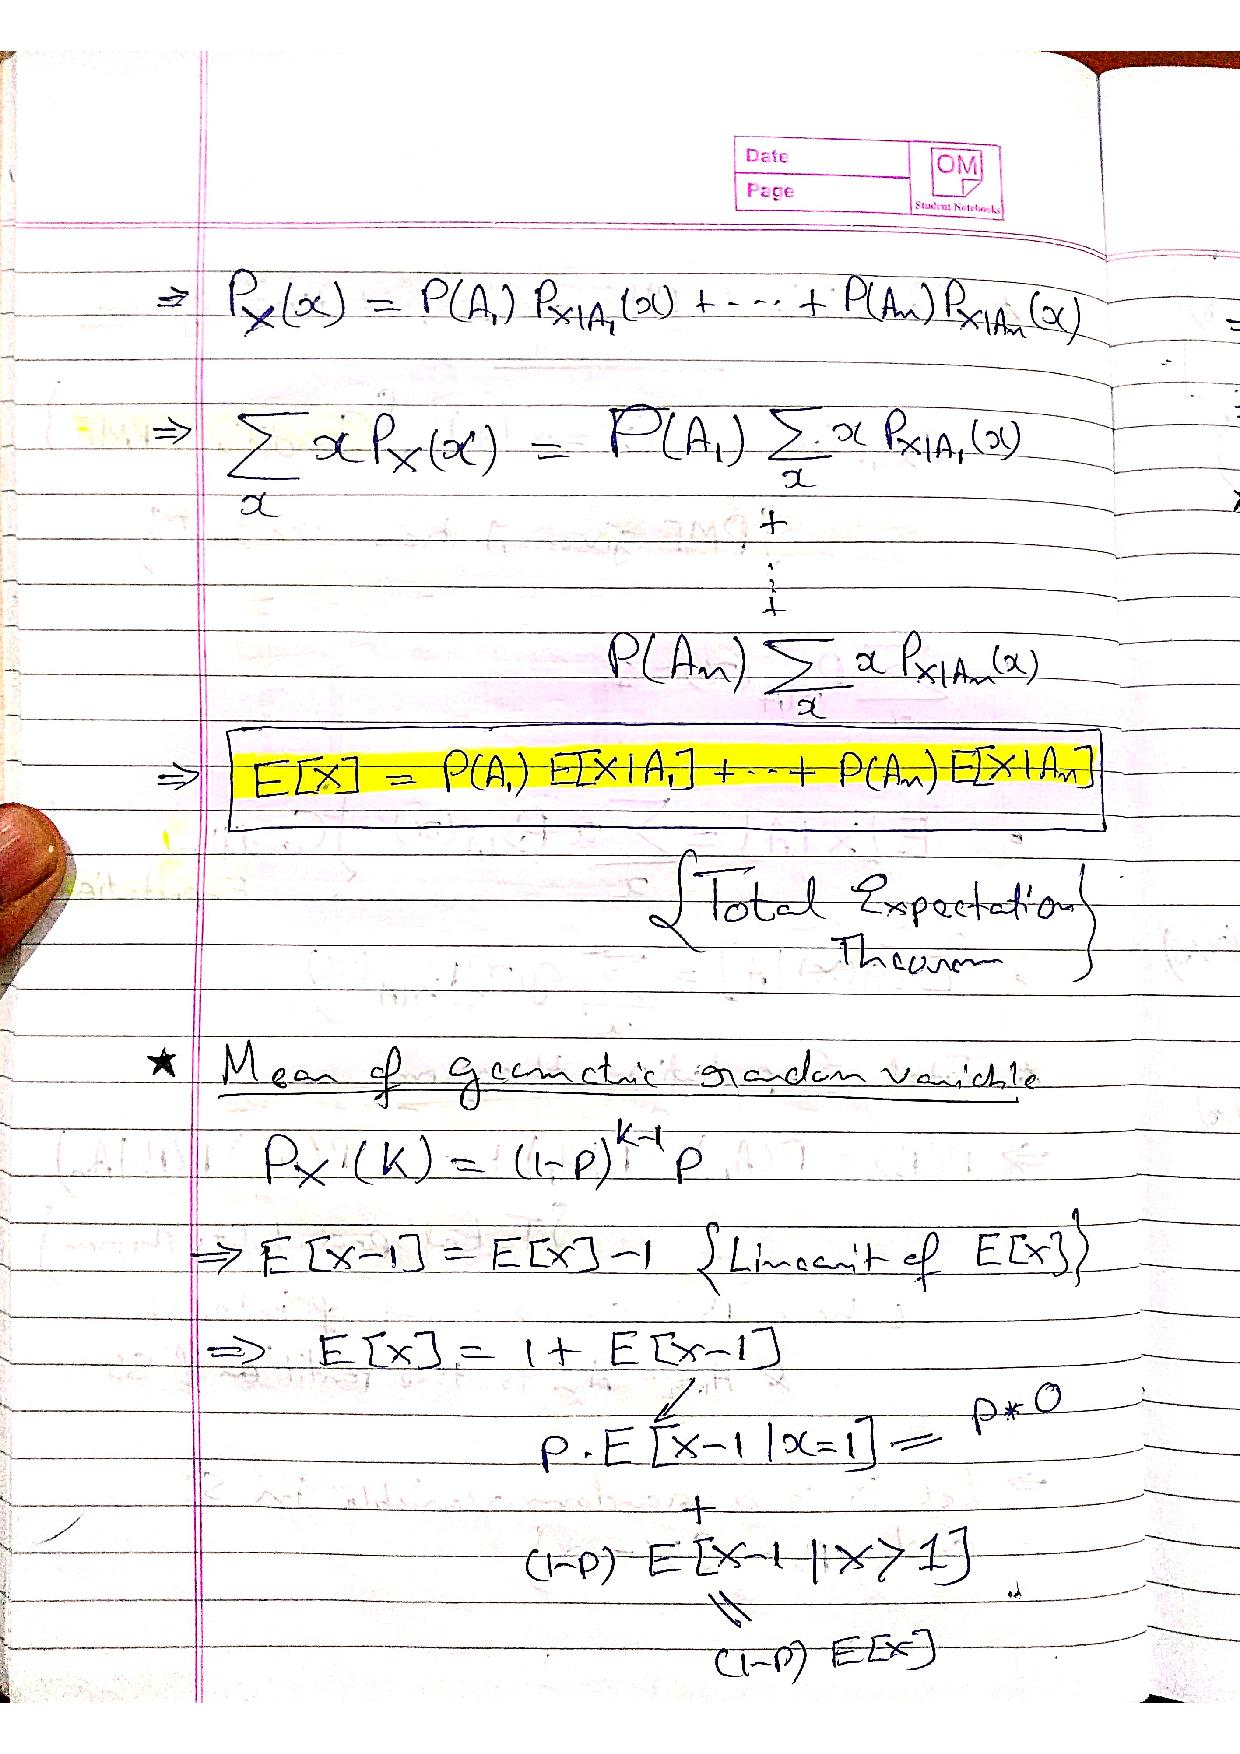 Date
Page
OM
Student Notebooks
⇒ P_X(x) = P(A₁) P_X|A₁(x) + ---- + P(Aₙ) P_X|Aₙ(x)
⇒ ∑_x x P_X(x) = P(A₁) ∑_x x P_X|A₁(x)
+
⋮
+
P(Aₙ) ∑_x x P_X|Aₙ(x)
⇒ E[X] = P(A₁) E[X|A₁] + --- + P(Aₙ) E[X|Aₙ]
{Total Expectation
Theorem}
★ Mean of geometric random variable
P_X(K) = (1-P)^(K-1) P
⇒ E[X-1] = E[X] - 1 {Linearit of E[X]}
⇒ E[X] = 1 + E[X-1]
P. E[X-1 | x=1] = P*0
+
(1-P) E[X-1 | X>1]
=
(1-P) E[X]